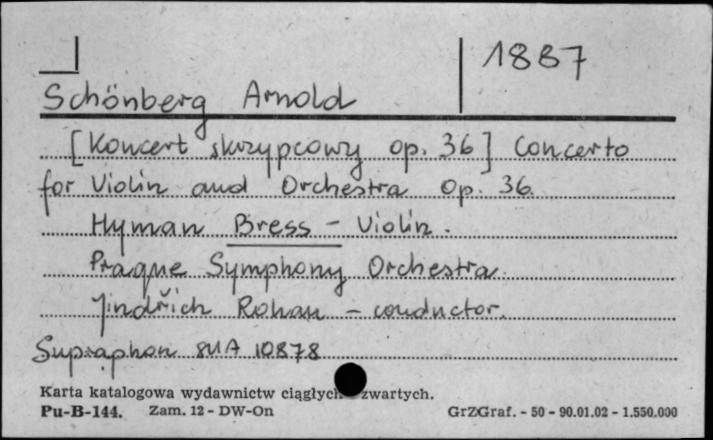 1887
Schönberg Arnold
[Koncert skrzypcowy op. 36] Concerto
for Violin and Orchestra Op. 36.
Hyman Bress - Violin.
Prague Symphony Orchestra.
Jindřich Rohan - conductor.
Supraphon SUA 10878
Karta katalogowa wydawnictw ciągłych zwartych.
Pu-B-144. Zam. 12 - DW-On GrZGraf. - 50 - 90.01.02 - 1.550.000